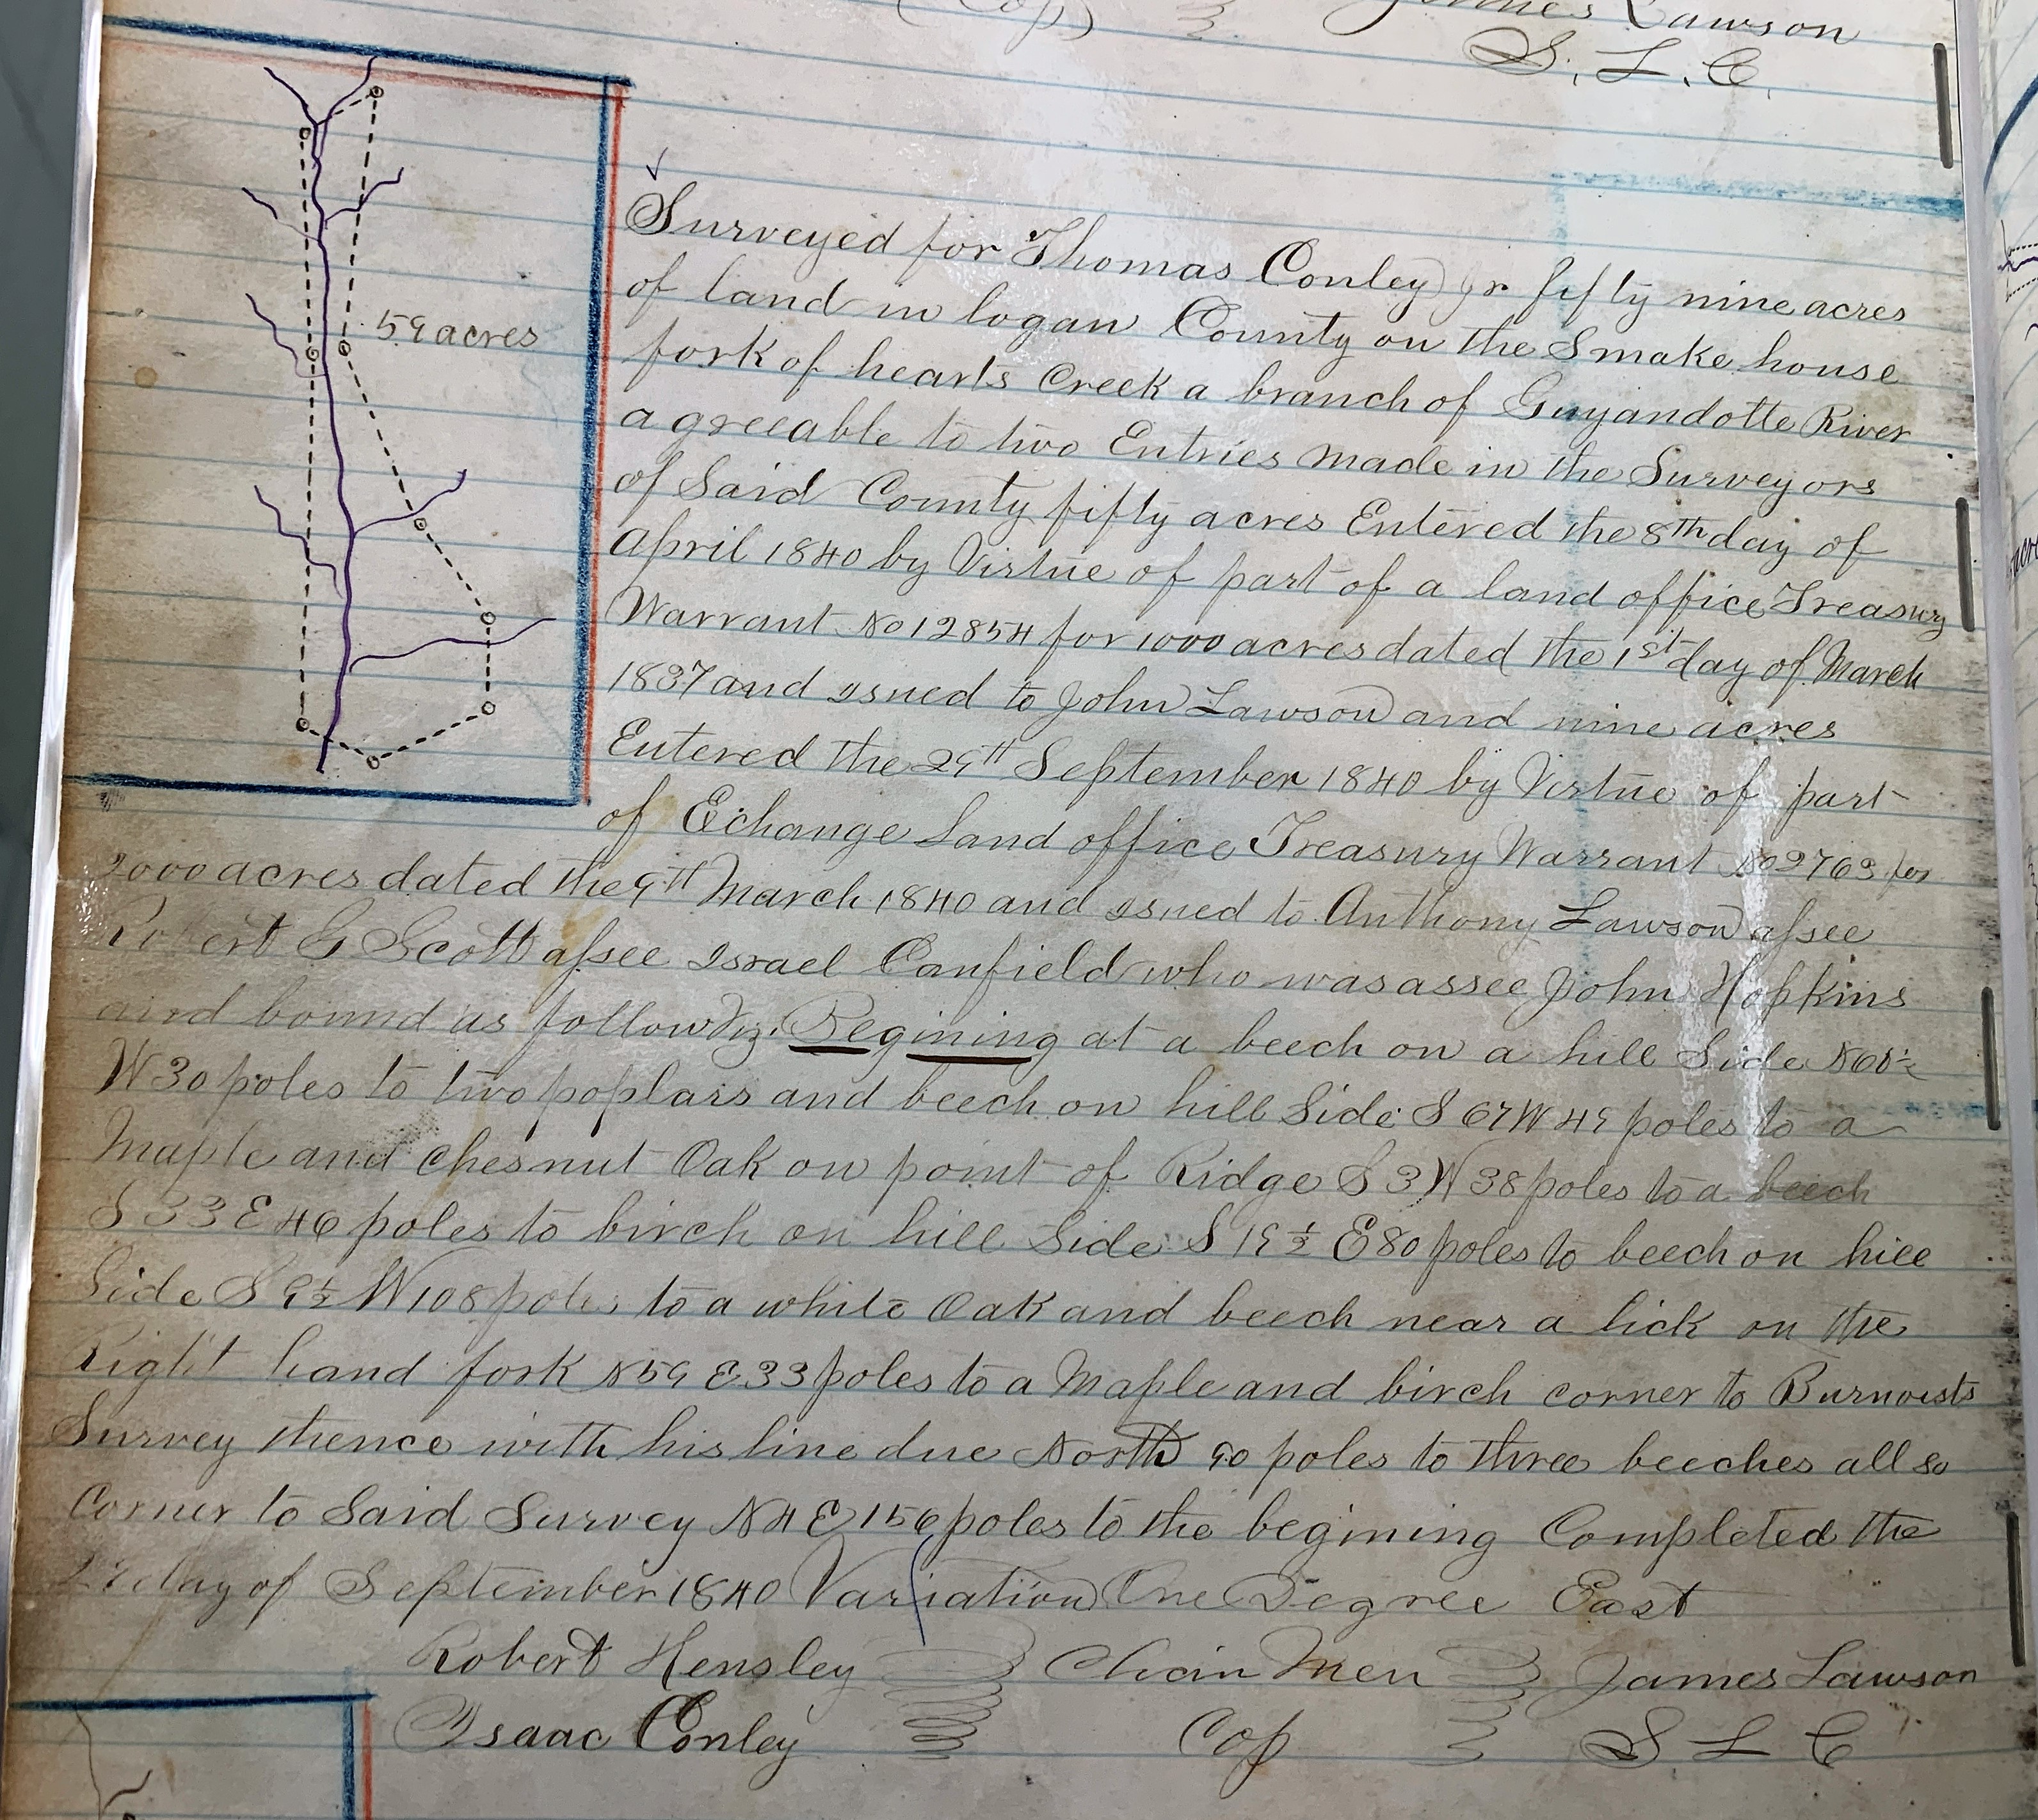 (Cop) James Lawson
S. L. C.
59 acres
Surveyed for Thomas Conley jr fifty nine acres
of land in logan County on the Smake house
fork of hearts Creek a branch of Guyandotte River
agreeable to two Entries made in the Surveyors
of Said County fifty acres Entered the 8th day of
April 1840 by Virtue of part of a land office Treasury
Warrant No 12854 for 1000 acres dated the 1st day of March
1837 and isued to John Lawson and nine acres
Entered the 29th September 1840 by Virtue of part
of Echange Land office Treasury Warrant No 2763 for
2000 acres dated the 9th March 1840 and isued to Anthony Lawson assee
Robert G Scott assee Israel Canfield who was assee John Hopkins
and bound as follow Viz. Begining at a beech on a hill Side
W 30 poles to two poplars and beech on hill Side S 67 W 49 poles to a
Maple and chesnut Oak on point of Ridge S 3 W 38 poles to a beech
S 33 E 46 poles to birch on hill Side S 19 ½ E 80 poles to beech on hill
Side S 9½ W 108 poles to a white Oak and beech near a lick on the
Right hand fork N 59 E 33 poles to a Maple and birch corner to
Survey thence with his line due North 90 poles to three beeches all so
Corner to Said Survey N 4 E 156 poles to the begining Completed the
day of September 1840 Variation One Degree East
Robert Hensley Chain Men James Lawson
Isaac Conley Cop S L C